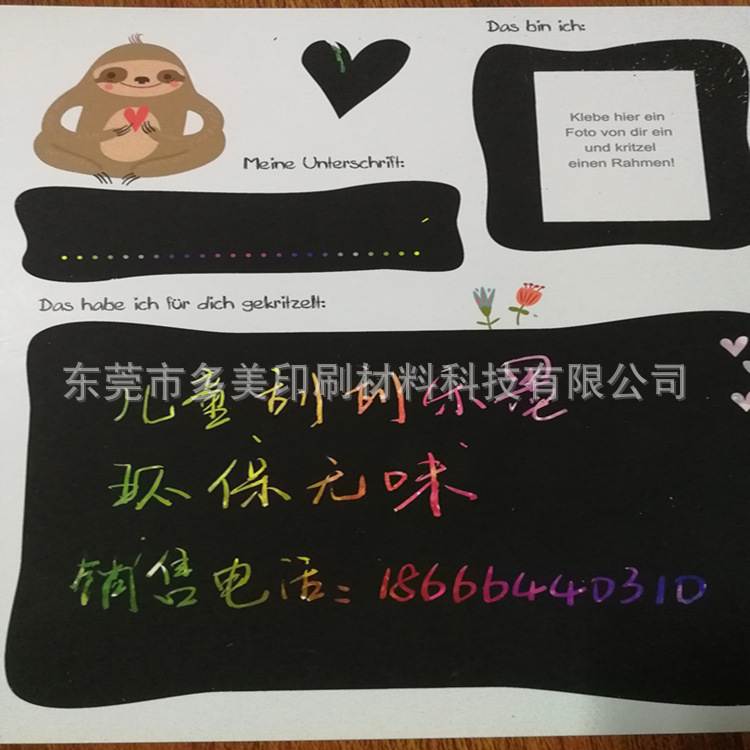 Das bin ich:
Klebe hier ein
Foto von dir ein
und kritzel
einen Rahmen!
Meine Unterschrift:
Das habe ich für dich gekritzelt:
东莞市多美印刷材料科技有限公司
儿童刮刮乐黑
环保无味
销售电话:18666440310